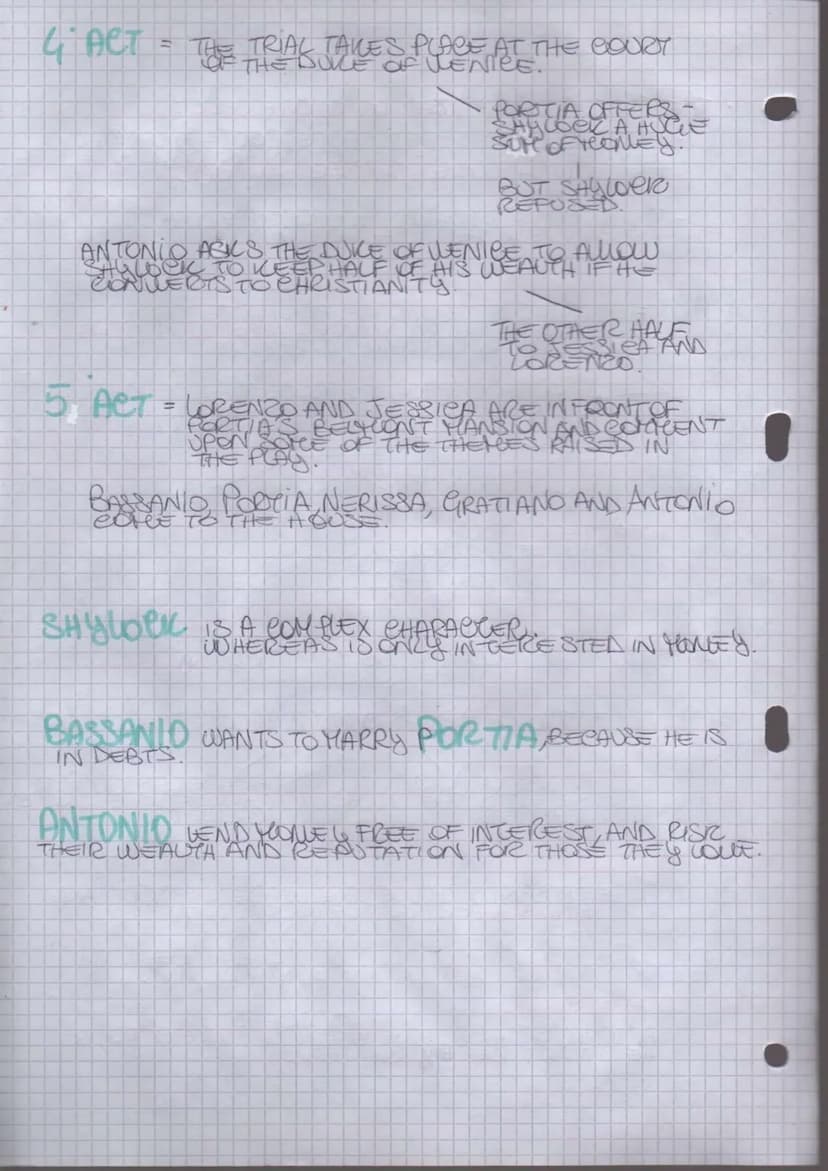 4° ACT = THE TRIAL TAKES PLACE AT THE COURT
OF THE DUKE OF VENICE.
PORTIA OFFERS
SHYLOCK A HUGE
SUM OF MONEY.
BUT SHYLOCK
REFUSED.
ANTONIO ASKS THE DUKE OF VENICE TO ALLOW
SHYLOCK TO KEEP HALF OF HIS WEALTH IF HE
CONVERTS TO CHRISTIANITY.
THE OTHER HALF
TO JESSICA AND
LORENZO.
5° ACT = LORENZO AND JESSICA ARE IN FRONT OF
PORTIA'S BELMONT MANSION AND COMMENT
UPON SOME OF THE THEMES RAISED IN
THE PLAY.
BASSANIO, PORTIA, NERISSA, GRATIANO AND ANTONIO
COME TO THE HOUSE.
SHYLOCK IS A COMPLEX CHARACTER.
WHEREAS IS ONLY INTERESTED IN MONEY.
BASSANIO WANTS TO MARRY PORTIA, BECAUSE HE IS
IN DEBTS.
ANTONIO LEND MONEY FREE OF INTEREST, AND RISK
THEIR WEALTH AND REPUTATION FOR THOSE THEY LOVE.